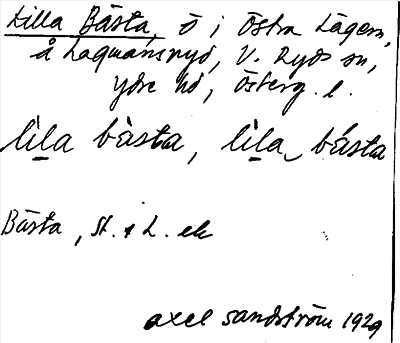 Lilla Bästa, ö i Östra Lägern,
å Lagmansryd, V. Ryds sn,
Ydre hd, Österg. l.
lìla bàsta, lìla básta
Bästa, st. & L. ek
axel sandström 1929